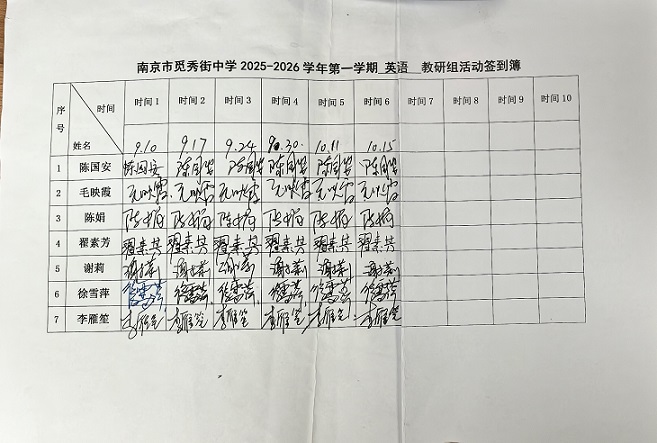 南京市觅秀街中学 2025-2026 学年第一学期 英语 教研组活动签到簿
序号 时间 姓名 时间 1 时间 2 时间 3 时间 4 时间 5 时间 6 时间 7 时间 8 时间 9 时间 10
9.10 9.17 9.24 9.30. 10.11 10.15
1 陈国安 陈国安 陈国安 陈国安 陈国安 陈国安 陈国安
2 毛映霞 毛映霞 毛映霞 毛映霞 毛映霞 毛映霞 毛映霞
3 陈娟 陈娟 陈娟 陈娟 陈娟 陈娟 陈娟
4 翟素芳 翟素芳 翟素芳 翟素芳 翟素芳 翟素芳 翟素芳
5 谢莉 谢莉 谢莉 谢莉 谢莉 谢莉 谢莉
6 徐雪萍 徐雪萍 徐雪萍 徐雪萍 徐雪萍 徐雪萍 徐雪萍
7 李雁笙 李雁笙 李雁笙 李雁笙 李雁笙 李雁笙 李雁笙